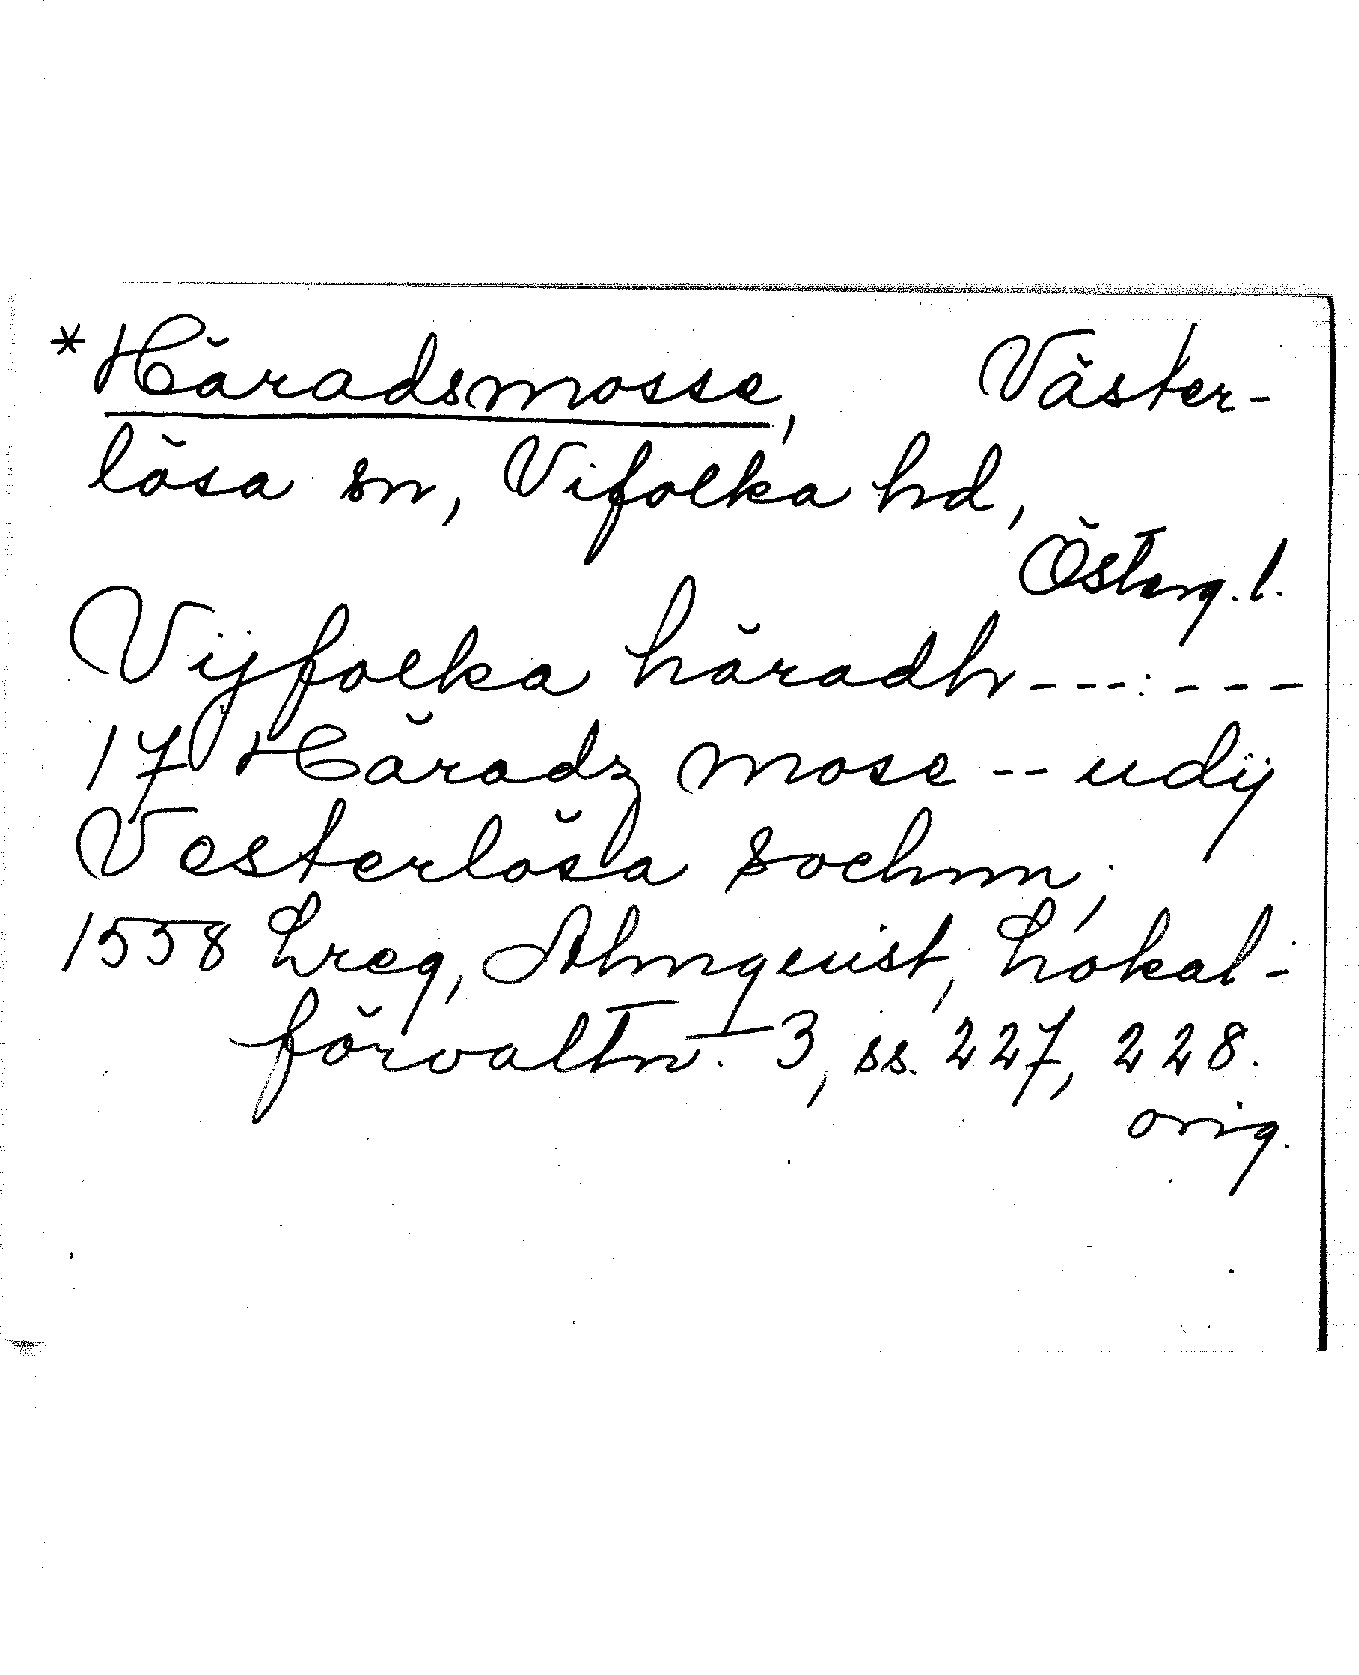 *Häradsmosse, Väster-
lösa sn, Vifolka hd,
Österg. l.
Vijfolka häradh ---:---
17 Häradz mose -- udij
Vesterlösa sochnn;
1558 Lreg, Almquist, Lokal-
förvaltn. 3, ss. 227, 228.
orig.